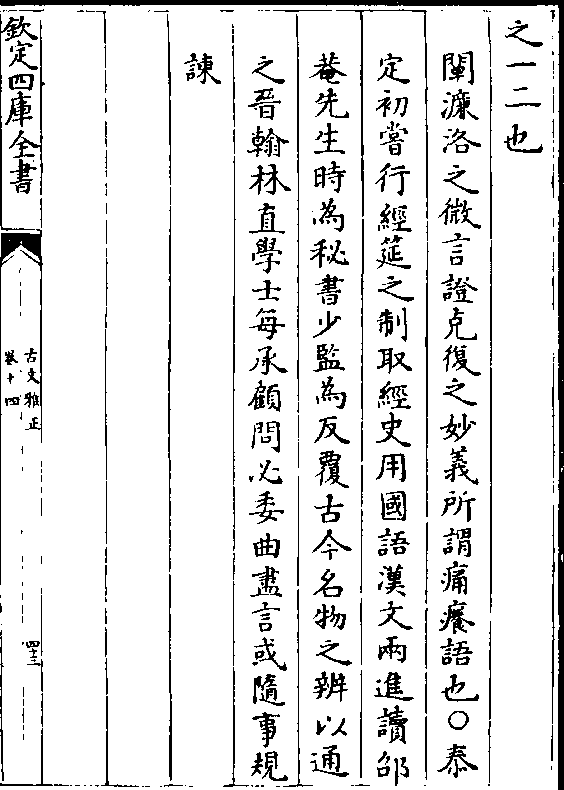 之一二也
闡濂洛之微言證克復之妙義所謂痛癢語也○泰
定初嘗行經筵之制取經史用國語漢文兩進讀邵
菴先生時為秘書少監為反覆古今名物之辨以通
之晉翰林直學士每承顧問必委曲盡言或隨事規
諫
欽定四庫全書
古文雅正
卷十四
四十三